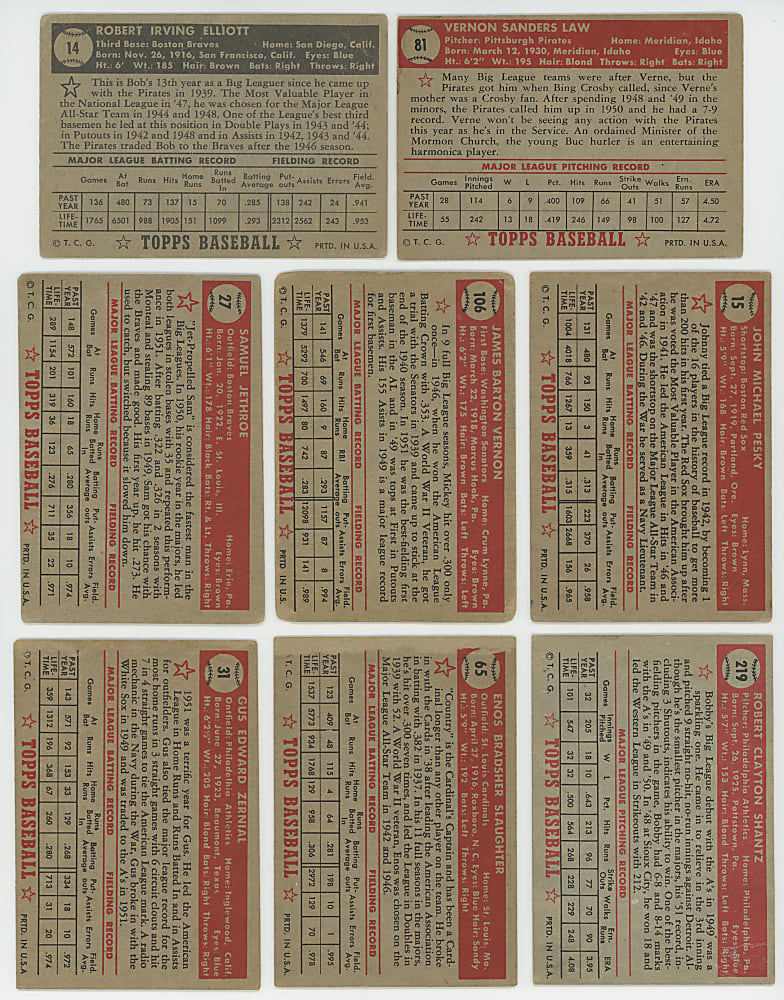 14
ROBERT IRVING ELLIOTT
Third Base: Boston Braves Home: San Diego, Calif.
Born: Nov. 26, 1916, San Francisco, Calif. Eyes: Blue
Ht.: 6' Wt.: 185 Hair: Brown Bats: Right Throws: Right
This is Bob's 13th year as a Big Leaguer since he came up
with the Pirates in 1939. The Most Valuable Player in
the National League in '47, he was chosen for the Major League
All-Star Team in 1944 and 1948. One of the League's best third
basemen he led at this position in Double Plays in 1943 and '44;
in Putouts in 1942 and 1948 and in Assists in 1942, 1943 and '44.
The Pirates traded Bob to the Braves after the 1946 season.
MAJOR LEAGUE BATTING RECORD FIELDING RECORD
Games At Bat Runs Hits Home Runs Runs Batted In Batting Average Put-outs Assists Errors Field. Avg.
PAST YEAR 136 480 73 137 15 70 .285 138 242 24 .941
LIFE-TIME 1765 6501 988 1905 151 1099 .293 2312 2562 243 .953
© T. C. G. TOPPS BASEBALL PRTD. IN U.S.A.
81
VERNON SANDERS LAW
Pitcher: Pittsburgh Pirates Home: Meridian, Idaho
Born: March 12, 1930, Meridian, Idaho Eyes: Blue
Ht.: 6'2" Wt.: 195 Hair: Blond Throws: Right Bats: Right
Many Big League teams were after Verne, but the
Pirates got him when Bing Crosby called, since Verne's
mother was a Crosby fan. After spending 1948 and '49 in the
minors, the Pirates called him up in 1950 and he had a 7-9
record. Verne won't be seeing any action with the Pirates
this year as he's in the Service. An ordained Minister of the
Mormon Church, the young Buc hurler is an entertaining
harmonica player.
MAJOR LEAGUE PITCHING RECORD
Games Innings Pitched W L Pct. Hits Runs Strike Outs Walks Ern. Runs ERA
PAST YEAR 28 114 6 9 .400 109 66 41 51 57 4.50
LIFE-TIME 55 242 13 18 .419 246 149 98 100 127 4.72
© T. C. G. TOPPS BASEBALL PRTD. IN U.S.A.
27
SAMUEL JETHROE
Outfield: Boston Braves Home: Erie, Pa.
Born: Jan. 20, 1922, E. St. Louis, Ill. Eyes: Brown
Ht.: 6'1" Wt.: 178 Hair: Black Bats: Rt. & Lt. Throws: Right
"Jet-Propelled Sam" is considered the fastest man in the
Big Leagues. In 1950, his rookie year in the majors, he led
both leagues in stolen bases with 35 and repeated this perform-
ance in 1951. After batting .322 and .326 in 2 seasons with
Montreal and stealing 89 bases in 1949, Sam got his chance with
the Braves and made good. His first year up, he hit .273. He
used to cater, but switched because it slowed him down.
MAJOR LEAGUE BATTING RECORD FIELDING RECORD
Games At Bat Runs Hits Home Runs Runs Batted In Batting Average Put-outs Assists Errors Field. Avg.
PAST YEAR 148 572 101 160 18 65 .280 356 18 10 .974
LIFE-TIME 289 1154 201 319 36 123 .276 711 35 22 .971
© T. C. G. TOPPS BASEBALL PRTD. IN U.S.A.
106
JAMES BARTON VERNON
First Base: Washington Senators Home: Crum Lynne, Pa.
Born: March 22, 1918, Marcus Hook, Pa. Eyes: Brown
Ht.: 6'2" Wt.: 175 Hair: Brown Bats: Left Throws: Left
In 9 full Big League seasons, Mickey hit over .300 only
once—in 1946, when he won the American League
Batting Crown with .353. A World War II Veteran, he got
a trial with the Senators in 1939 and came up to stick at the
end of the 1940 season. In 1951 he was the best-fielding first
baseman in the AL. In '49 he was tops at first in Putouts
and Assists. His 155 Assists in 1949 is a major league record
for first basemen.
MAJOR LEAGUE BATTING RECORD FIELDING RECORD
Games At Bat Runs Hits Home Runs RBI Batting Average Put-outs Assists Errors Field. Avg.
PAST YEAR 141 546 69 160 9 87 .293 1157 87 8 .994
LIFE-TIME 1377 5292 700 1497 80 742 .283 12098 931 141 .989
© T. C. G. TOPPS BASEBALL PRTD. IN U.S.A.
15
JOHN MICHAEL PESKY
Shortstop: Boston Red Sox Home: Lynn, Mass.
Born: Sept. 27, 1919, Portland, Ore. Eyes: Brown
Ht.: 5'9" Wt.: 168 Hair: Brown Bats: Left Throws: Right
Johnny tied a Big League record in 1942, by becoming 1
of the 16 players in the history of baseball to get more
than 200 hits in his first year. The Red Sox brought him up after
he was voted the Most Valuable Player in the American Associ-
ation in 1941. He led the American League in Hits in '46 and
'47 and was the shortstop on the Major League All-Star Team in
'42 and '46. During the War he served as a Navy Lieutenant.
MAJOR LEAGUE BATTING RECORD FIELDING RECORD
Games At Bat Runs Hits Home Runs Runs Batted In Batting Average Put-outs Assists Errors Field. Avg.
PAST YEAR 131 480 93 150 3 41 .313 223 370 26 .958
LIFE-TIME 1004 4018 766 1267 13 359 .315 1603 2668 156 .965
© T. C. G. TOPPS BASEBALL PRTD. IN U.S.A.
31
GUS EDWARD ZERNIAL
Outfield: Philadelphia Athletics Home: Inglewood, Calif.
Born: June 27, 1923, Beaumont, Texas Eyes: Blue
Ht.: 6'2½" Wt.: 205 Hair: Blond Bats: Right Throws: Right
1951 was a terrific year for Gus. He led the American
League in Home Runs and Runs Batted In and in Assists
for outfielders. Gus also tied the major league record for the
most home runs in 3 straight games with 6 circuit clouts and hit
7 in 4 straight games to set the American League mark. A radio
mechanic in the Navy during the War, Gus broke in with the
White Sox in 1949 and was traded to the A's in 1951.
MAJOR LEAGUE BATTING RECORD FIELDING RECORD
Games At Bat Runs Hits Home Runs Runs Batted In Batting Average Put-outs Assists Errors Field. Avg.
PAST YEAR 143 571 92 153 33 129 .268 334 18 10 .972
LIFE-TIME 359 1312 196 368 67 260 .280 713 31 20 .974
© T. C. G. TOPPS BASEBALL PRTD. IN U.S.A.
65
ENOS BRADSHER SLAUGHTER
Outfield: St. Louis Cardinals Home: St. Louis, Mo.
Born: April 27, 1916, Roxboro, N. C. Eyes: Blue Hair: Sandy
Ht.: 5'9" Wt.: 192 Bats: Left Throws: Right
"Country" is the Cardinal's Captain and has been a Card-
inal longer than any other player on the team. He broke
in with the Cards in '38 after leading the American Association
in batting with .382 in 1937. In his 11 full seasons in the majors,
he's hit over .300 seven times and led the League in Doubles in
1939 with 52. A World War II veteran, Enos was chosen on the
Major League All-Star Team in 1942 and 1946.
MAJOR LEAGUE BATTING RECORD FIELDING RECORD
Games At Bat Runs Hits Home Runs Runs Batted In Batting Average Put-outs Assists Errors Field. Avg.
PAST YEAR 123 409 48 115 4 64 .281 198 10 1 .995
LIFE-TIME 1537 5773 934 1768 129 958 .306 2972 129 70 .978
© T. C. G. TOPPS BASEBALL PRTD. IN U.S.A.
219
ROBERT CLAYTON SHANTZ
Pitcher: Philadelphia Athletics Home: Philadelphia, Pa.
Born: Sept. 26, 1925, Pottstown, Pa. Eyes: Blue
Ht.: 5'7" Wt.: 155 Hair: Blond Throws: Left Bats: Right
Bobby's Big League debut with the A's in 1949 was a
sparkling one. He came in to relieve in the 3rd inning
and pitched 9 straight no-hit, no-run innings against Detroit. Al-
though he's the smallest pitcher in the majors, his '51 record, in-
cluding 3 Shutouts, indicates his ability to win. One of the best-
fielding pitchers in the game, Bobby had 6-8 and 8-14 marks
with the A's in '49 and '50. At Sioux City, he won 18 and
led the Western League in Strikeouts with 212.
MAJOR LEAGUE PITCHING RECORD
Games Innings Pitched W L Pct. Hits Runs Strike Outs Walks Ern. Runs ERA
PAST YEAR 32 205 18 10 .643 213 96 77 70 90 3.95
LIFE-TIME 101 547 32 32 .500 564 268 228 229 248 4.08
© T. C. G. TOPPS BASEBALL PRTD. IN U.S.A.